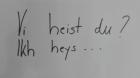 Vi heist du?
Ikh heys...